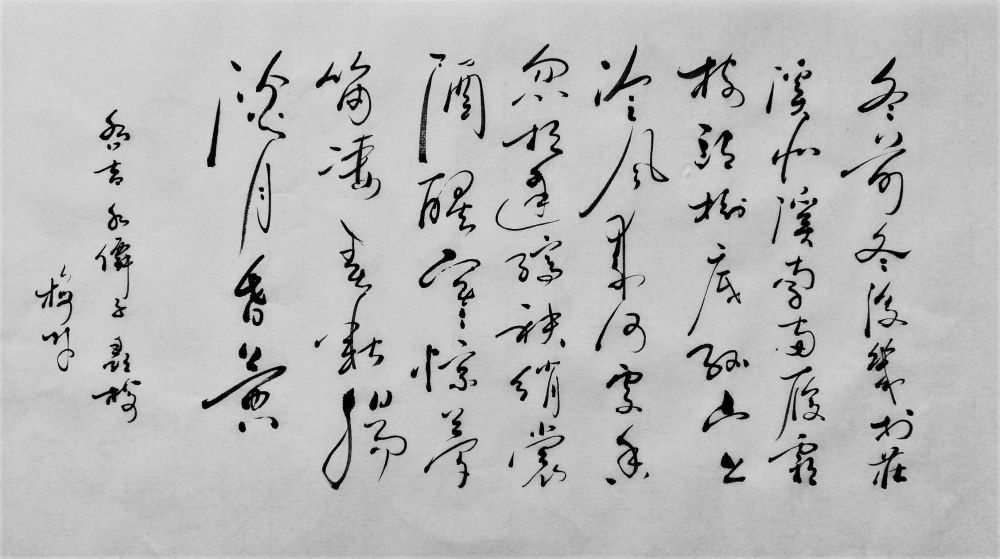 冬前冬後幾村莊
溪北溪南兩履霜
樹頭樹底孤山上
冷風來何處香
忽相逢縞袂綃裳
酒醒寒惊夢
笛凄春斷腸
淡月昏黃
喬吉水僊子尋梅